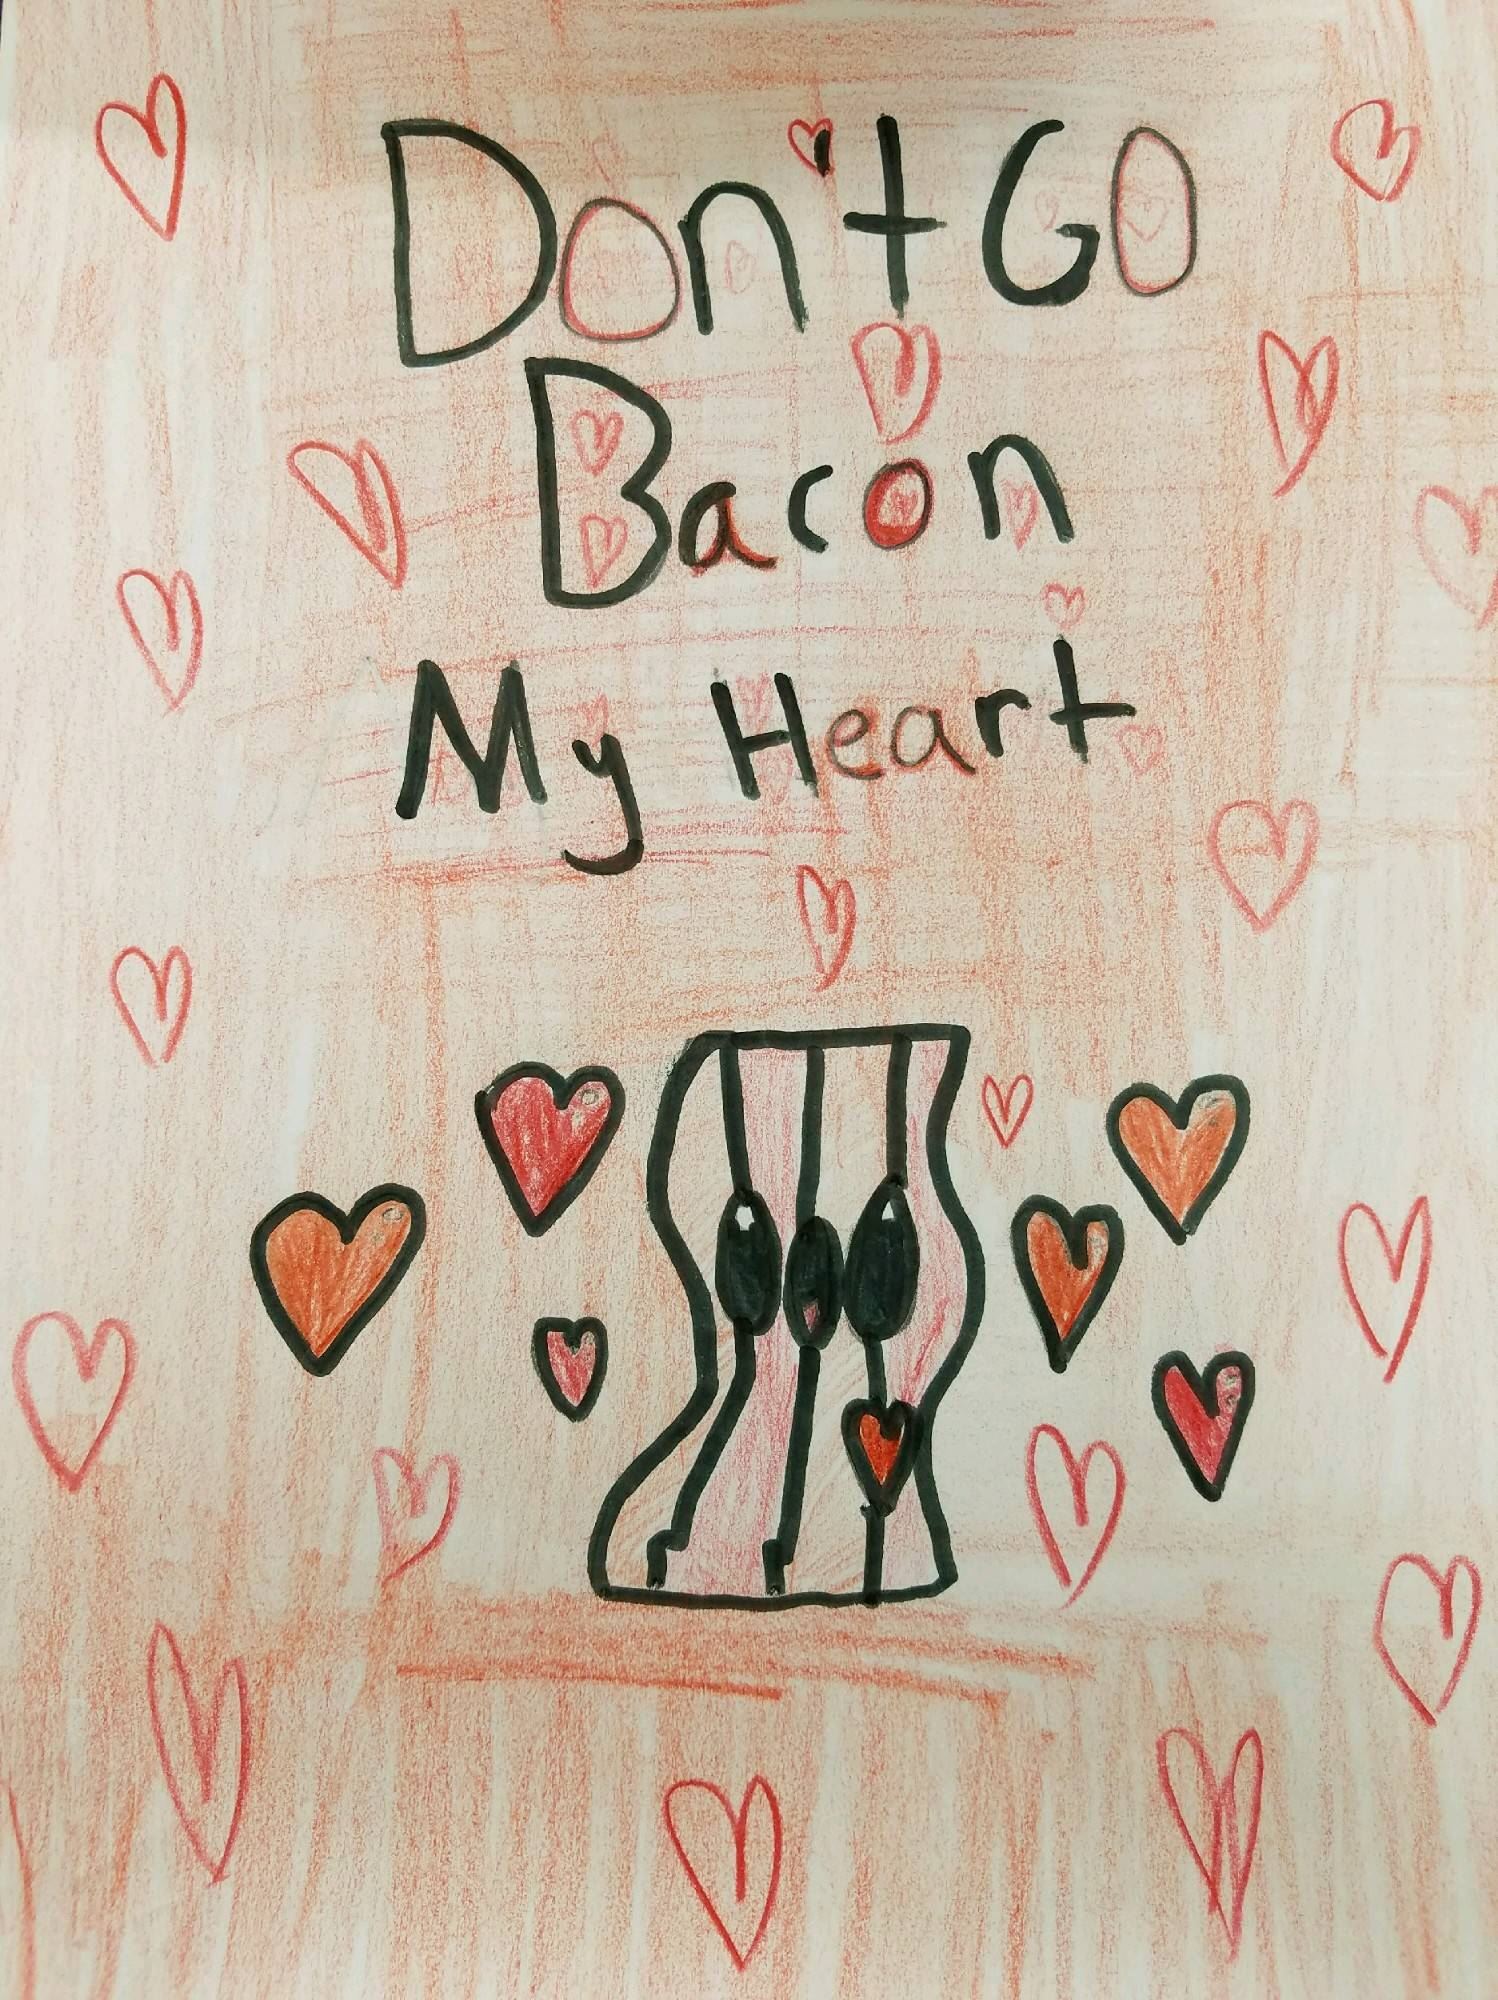 Don't Go
Bacon
My Heart